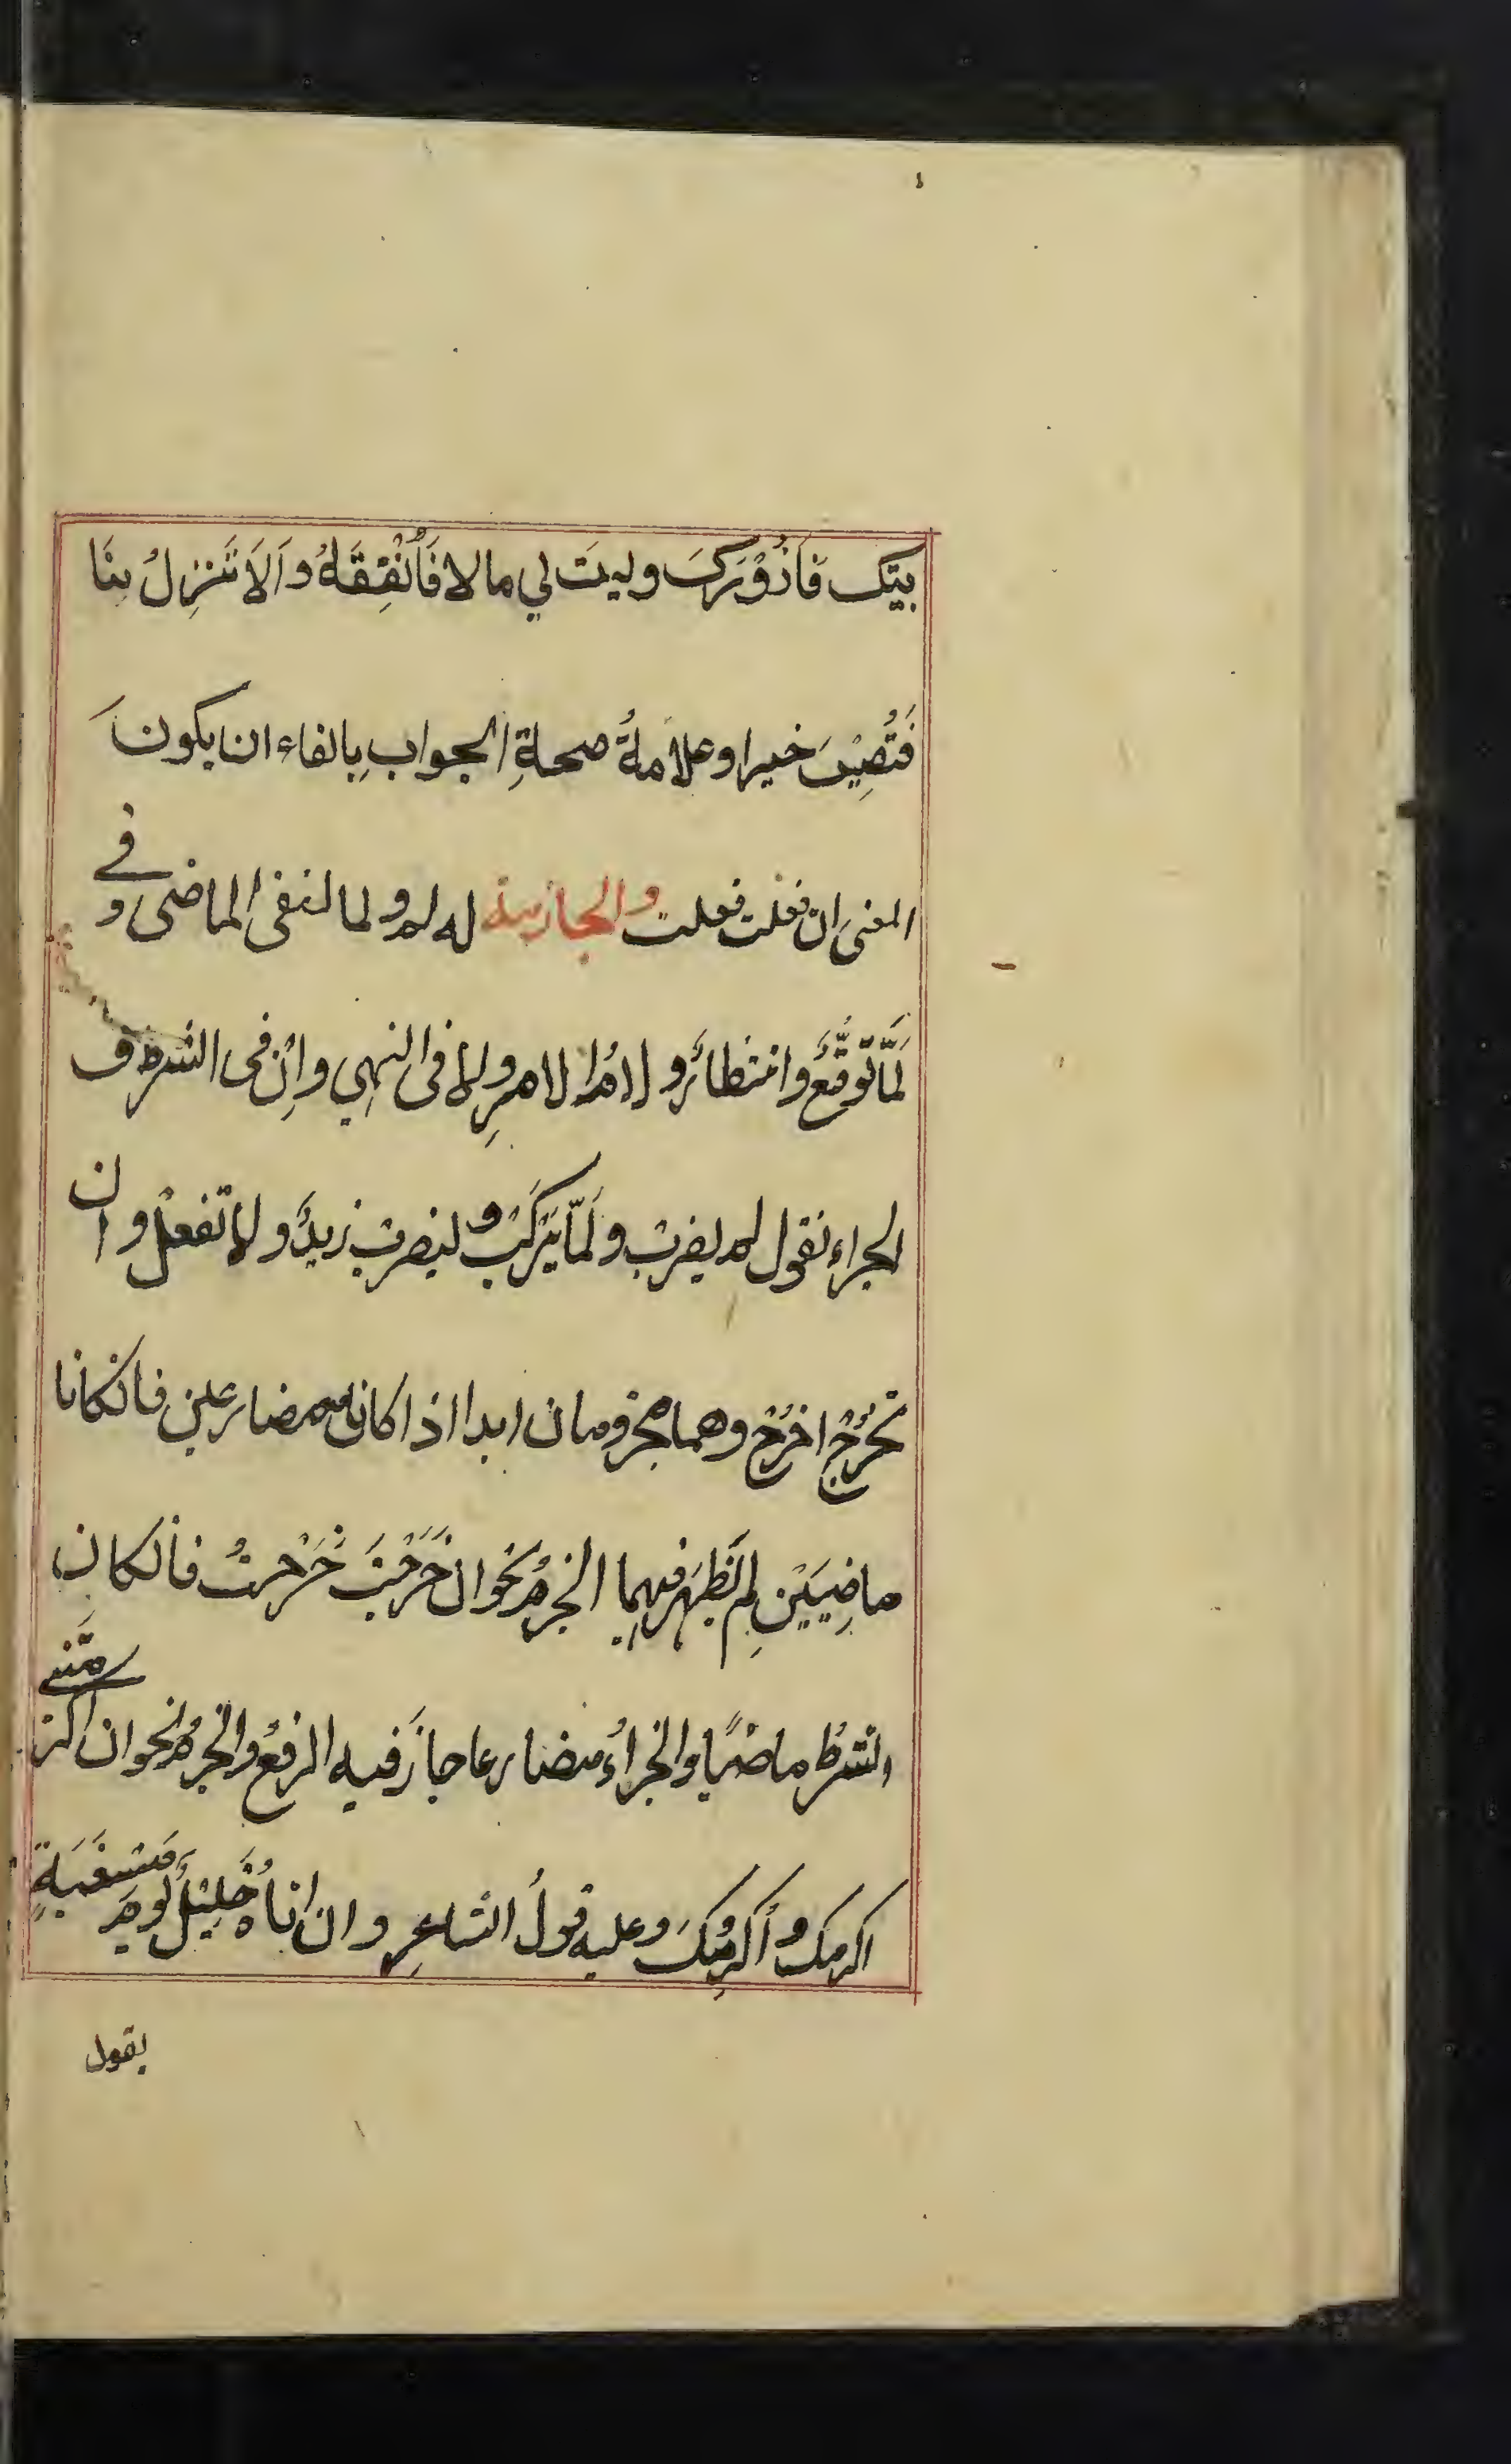 بيتك فَاَزُوْرَكَ وليتَ لي مالا فَأُنْفِقَهُ وَاَلَا تَنْزِلُ بِنَا
فَتُصِيْبَ خيرا وعلامةُ صحةِ الجوابِ بِالفاء ان يكونَ
المعنى ان فعلت فعلت والجازمة لم لم ولما لنفى الماضى و فى
لَمَّا تَوَقُّعٌ وانتظارٌ ولامُ الامرِ ولا فى النهي واِنْ فى الشرط و
الجزاء نقول لم يضرب ولَمَّا يَرْكَبْ وليضربْ زيدٌ ولا تفعلْ وان
تخرُجْ اخرُجْ وهما مجزومان ابدا اذا كانا مضارعين فان كانا
ماضِيَيْنِ لم تَظْهَر فيهِما الجزمُ نحو ان خَرَجْتَ خَرَجتُ فان كان
الشرطُ ماضيًا والجزاءُ مضارعا جازَ فيه الرفعُ والجزمُ نحو ان اكرمتني
اكرمك وأُكرمُكَ وعليه قولُ الشاعرِ وان اتاهُ خَلِيْلٌ يومَ مَسْغَبَةٍ
يقول